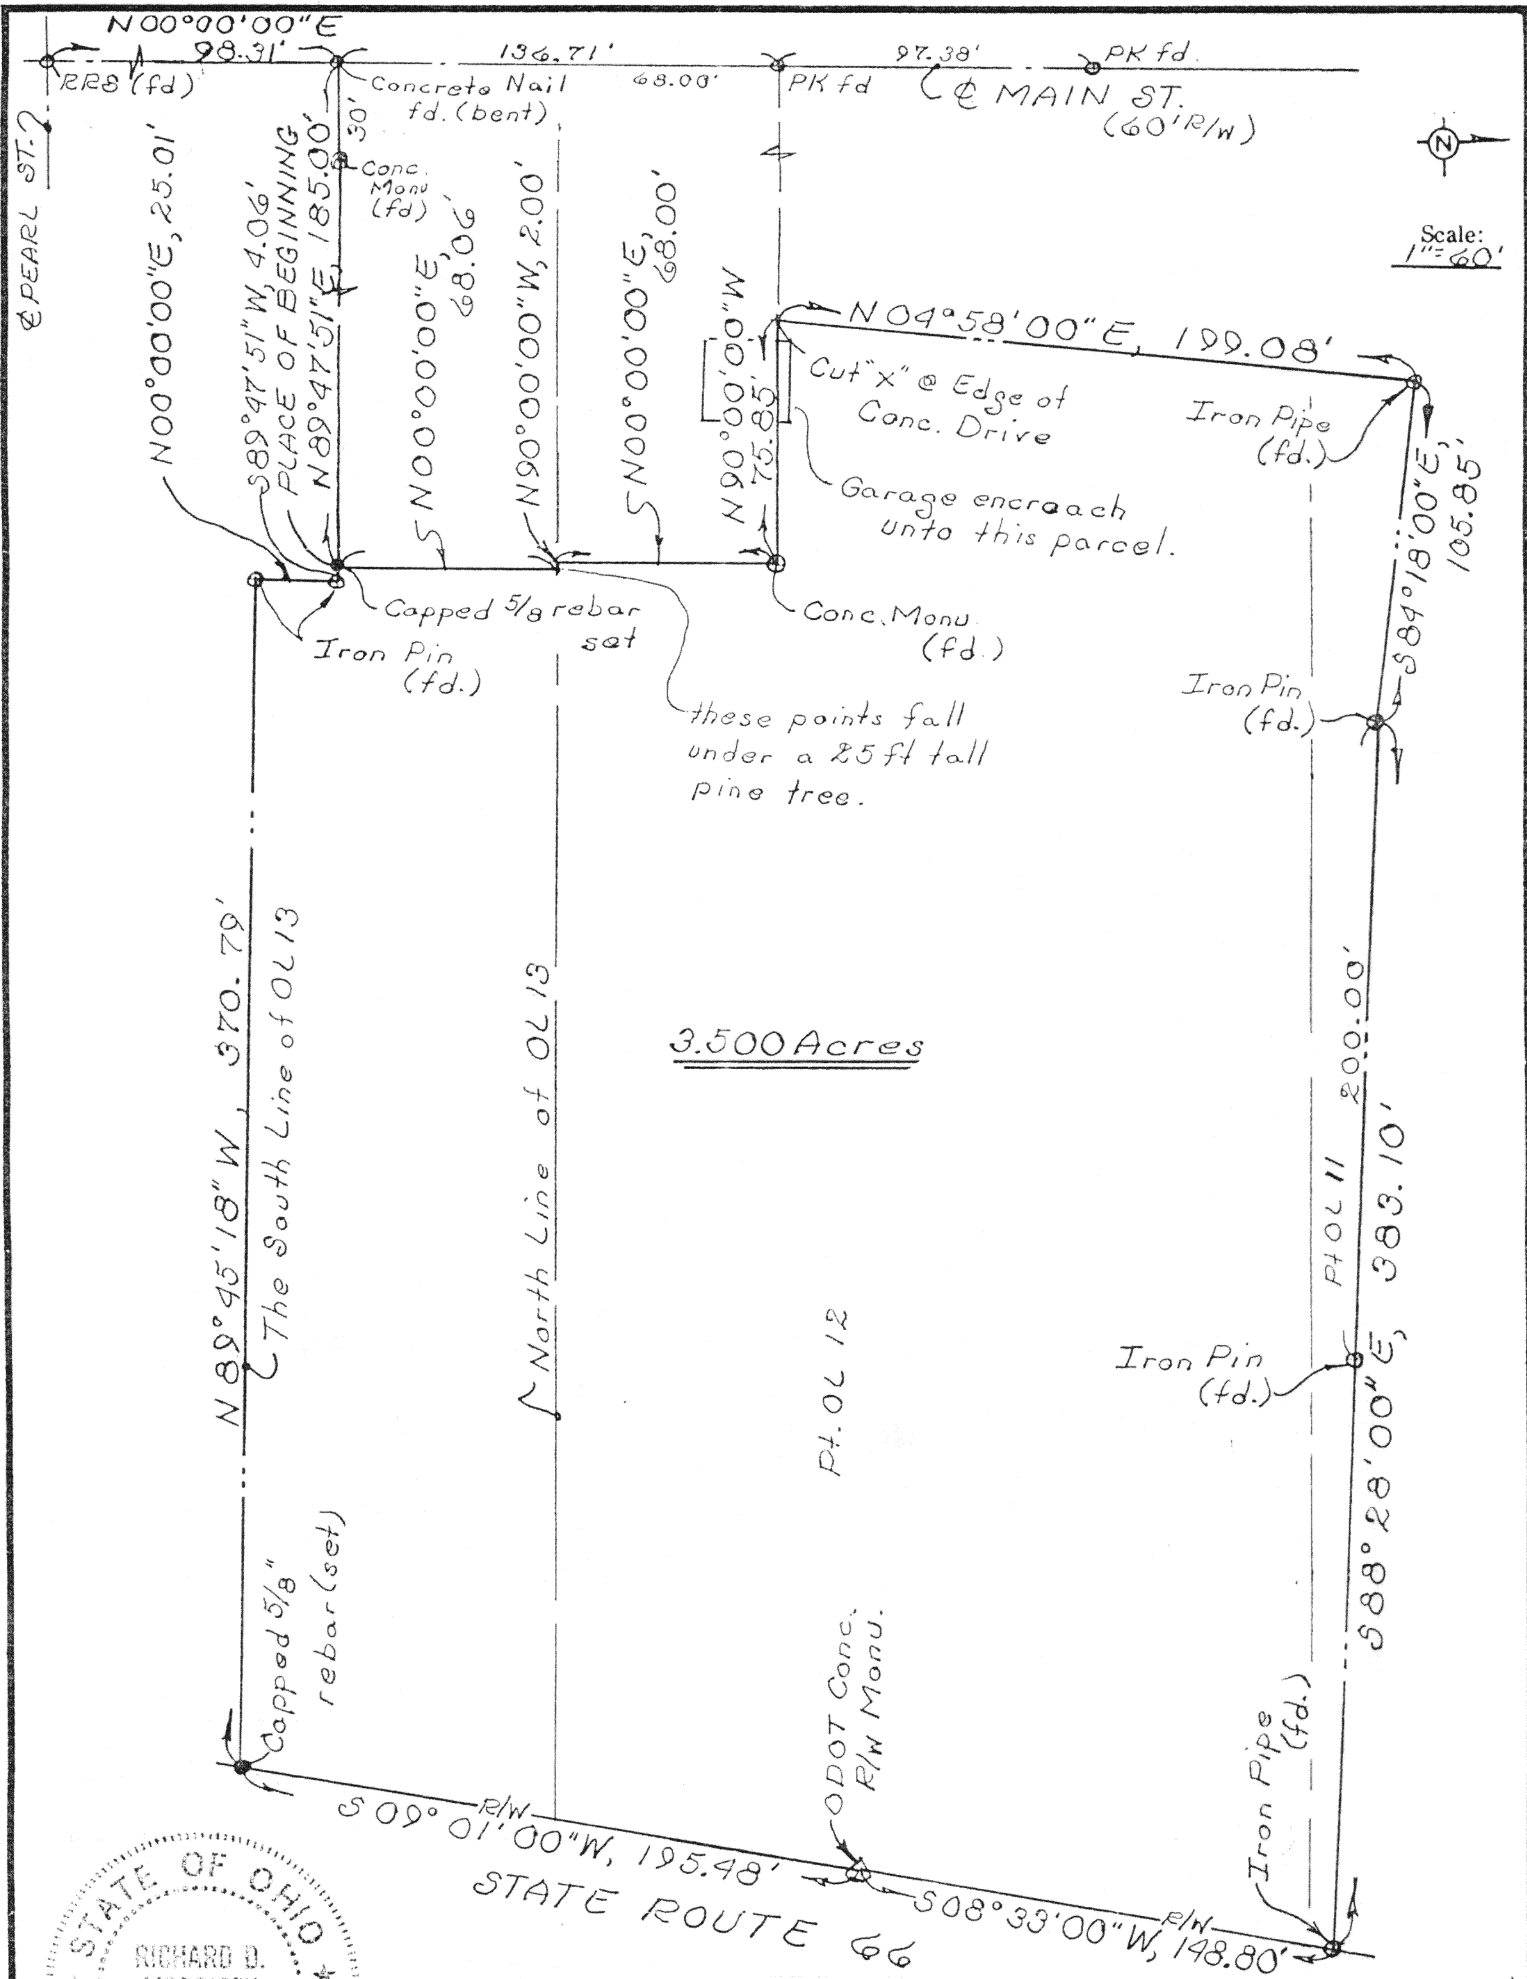 N00°00'00"E
98.31'
136.71'
97.38'
PK fd.
RRS (fd)
Concrete Nail
fd. (bent)
68.00'
PK fd
℄ MAIN ST.
(60' R/W)
N
Scale:
1"=60'
℄ PEARL ST.?
N00°00'00"E, 25.01'
S89°47'51"W, 4.06'
PLACE OF BEGINNING
N89°47'51"E, 185.00'
30'
Conc.
Monu
(fd)
N00°00'00"E,
68.06'
N90°00'00"W, 2.00'
N00°00'00"E,
68.00'
N90°00'00"W
75.85'
N 04°58'00"E, 199.08'
Cut "x" @ Edge of
Conc. Drive
Iron Pipe
(fd.)
S84°18'00"E,
105.85'
Garage encroach
unto this parcel.
Capped 5/8 rebar
set
Iron Pin
(fd.)
Conc. Monu.
(fd.)
these points fall
under a 25 ft tall
pine tree.
Iron Pin
(fd.)
N 89°45'18" W, 370.79'
The South Line of OL 13
North Line of OL 13
3.500 Acres
200.00'
Pt OL 11
S88°28'00"E, 383.10'
Pt. OL 12
Iron Pin
(fd.)
Capped 5/8"
rebar (set)
ODOT Conc.
R/W Monu.
Iron Pipe
(fd.)
R/W
S 09° 01'00"W, 195.48'
STATE ROUTE 66
R/W
S08°33'00"W, 148.80'
STATE OF OHIO
RICHARD D.